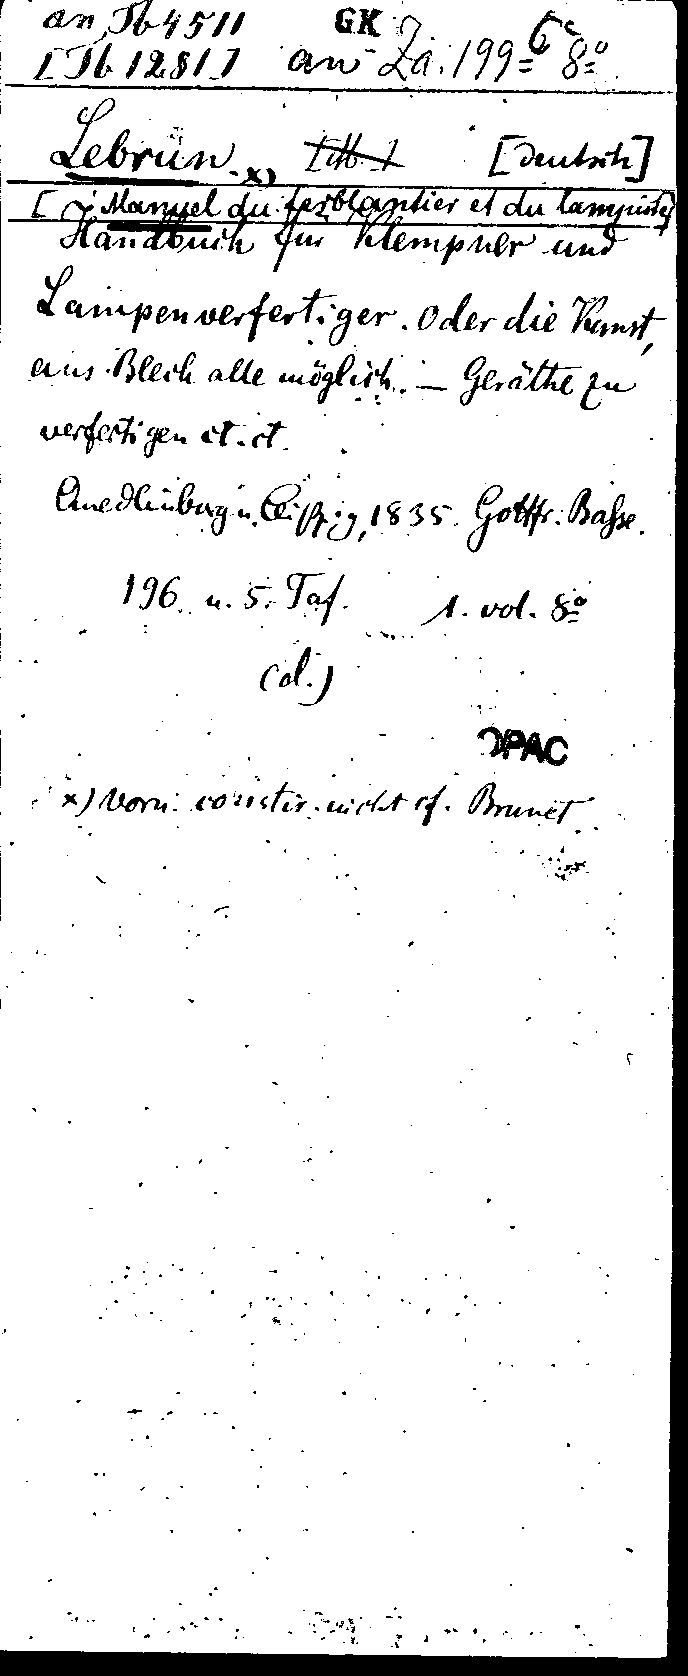 an Tb 4511 GK
[Tb 1281] an Za. 199 = 6c 8o
Lebrün x) [Deutsch]
[Manuel du ferblantier et du lampiste]
Handbuch für Klempner und
Lampenverfertiger. Oder die Kunst,
aus Blech alle möglich. — Geräthe zu
verfertigen et. ct.
Quedlinburg u. Leipzig, 1835. Gottfr. Basse.
196 u. 5. Taf. 1. vol. 8o
(d.)
OPAC
x) Vorn. constir. nicht cf. Brunet